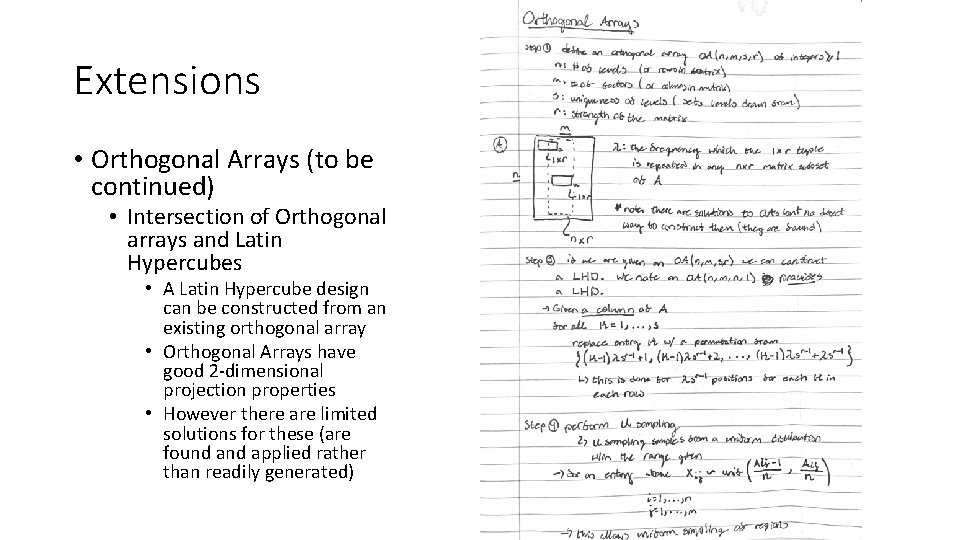 Extensions
• Orthogonal Arrays (to be
continued)
• Intersection of Orthogonal
arrays and Latin
Hypercubes
• A Latin Hypercube design
can be constructed from an
existing orthogonal array
• Orthogonal Arrays have
good 2-dimensional
projection properties
• However there are limited
solutions for these (are
found and applied rather
than readily generated)
Orthogonal Arrays
Step ① define an orthogonal array OA(n,m,s,r) of integers ≥ 1
n: # of levels (or rows in matrix)
m: # of factors (or columns in matrix)
s: uniqueness of levels (sets levels drawn from)
r: strength of the matrix
m
A
n
1xr
1xr
nxr
λ: the frequency which the 1xr tuple
is repeated in any nxr matrix subset
of A
* note there are solutions to OAs but no direct
way to construct them (they are found)
Step ② if we are given an OA(n,m,s,r) we can construct
a LHD. We note an OA(n,m,n,1) provides
a LHD.
→ Given a column of A
for all K=1,...,s
replace entry K w/ a permutation from
{(K-1)λs^r-1+1, (K-1)λs^r-1+2, ..., (K-1)λs^r-1+λs^r-1}
↳ this is done for λs^r-1 positions for each K in
each row
Step perform U sampling
U sampling samples from a uniform distribution
w/in the range given
→ for an entry Xij ~ unif (Aij-1/n, Aij/n)
i=1,...,n
j=1,...,m
→ this allows uniform sampling of regions